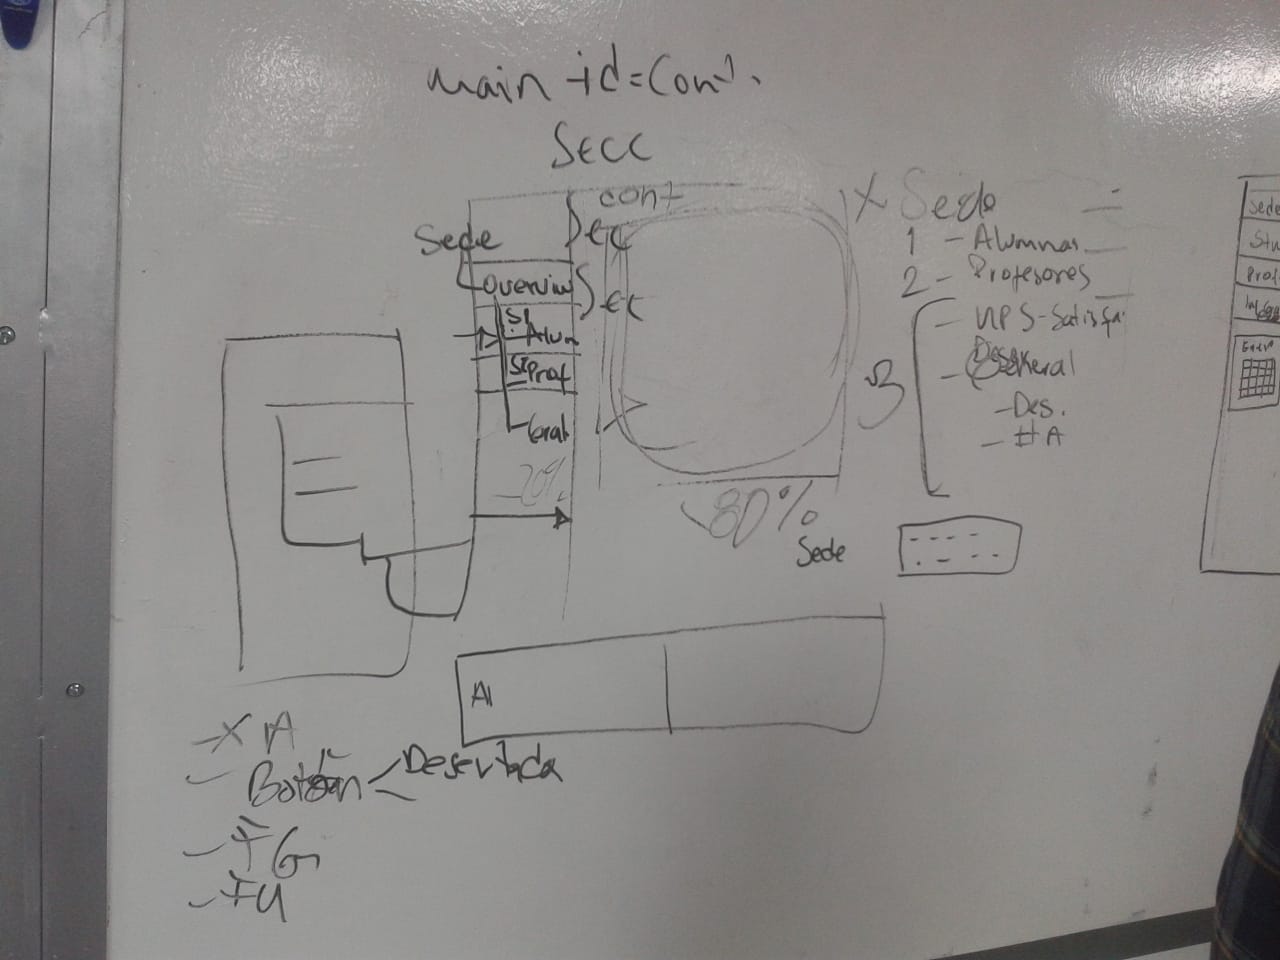 main id=Cont.
SECC
cont
Sec
Sede
Overview
Sec
SI
Alum
SI Prof
Gral
20%
80%
Sede
X Sede
1 - Alumnas
2 - Profesores
- NPS-Satisfa
3
- General
- Des.
- # A
Al
- X IA
- Botón < Desertada
- IG
- IU
Sede
Stu
Prof